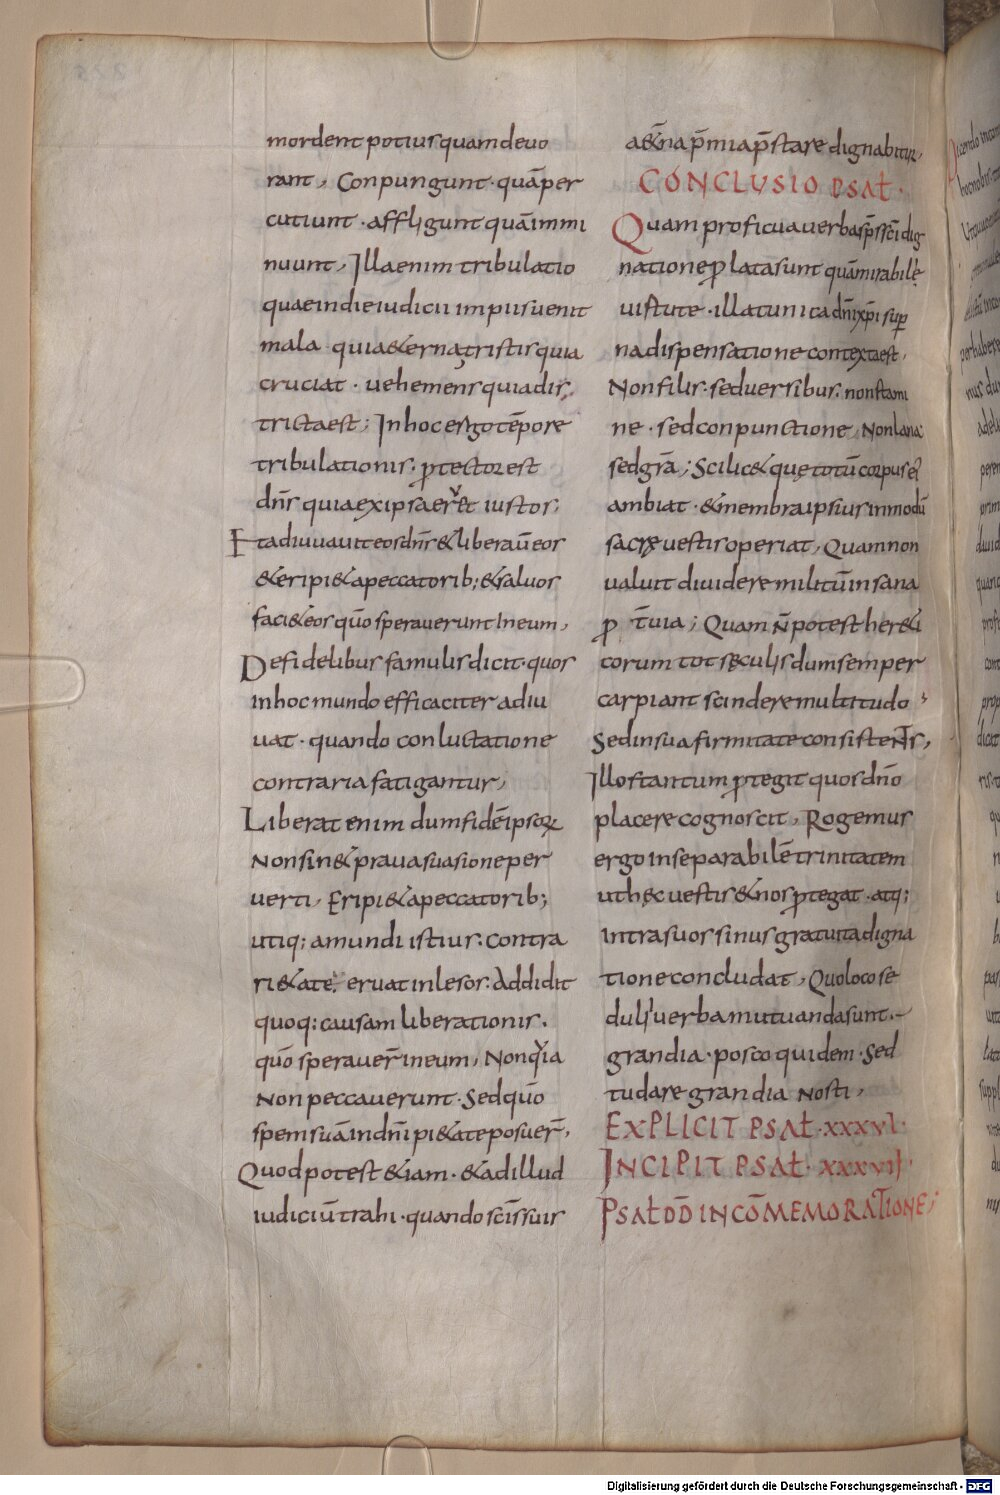 mordent potius quam deuo
rant, Conpungunt · quā per
cutiunt · affligunt quā immi
nuunt, Illa enim tribulatio
quae in die iudicii impiis uenit
mala quia &erna, tristis quia
cruciat · uehemens quia dis,
tricta est; In hoc ergo tēpore
tribulationis: ptector est
dn̄s quia ex ipsa eruet iustos;
Et adiuuauit eos dn̄s & liberau̅ eos
& eripi& a peccatorib; & saluos
faci& eos quō sperauerunt In eum,
De fidelibus famulis dicit · quos
in hoc mundo efficaciter adiu
uat · quando conluctatione
contraria fatigantur,
Liberat enim dum fidē ipsoꝝ
Non sin& praua suasione per
uerti, Eripi& a peccatorib;
utiq; a mundi istius: contra
ri&ate: eruat inlesos: Addidit
quoq; causam liberationis.
quō sperauer̄ in eum, Non quia
Non peccauerunt · Sed quō
spem suā in dn̄i pi&ate posuer̄,
Quod potest &iam · & ad illud
iudiciū trahi · quando scīs suis
a&na p̄mia p̄stare dignabitur,
CONCLUSIO PSAŁ ·
Quam proficua uerba sp̄s sc̄i dig
natione platas unt quā mirabile
uirtute · illa tunica dn̄i xp̄i sup
na dispensatione contexta est,
Non filis: sed uersibus: non stami
ne · sed conpunctione, Non lana:
sed grā; Scilic& quę totū corpus ei
ambiat · & membra ipsius in modū
sacrę uestis operiat, Quam non
ualuit diuidere militū insana
p t̄uia; Quam n̄ potest her&i
corum tot sęculis dum semper
carpiant scindere multitudo,
Sed in sua firmitate consistenS,
Illos tantum ptegit quos dn̄o
placere cognoscit, Rogemus
ergo inseparabilē trinitatem
ut hęc uestis & nos ptegat · atq;
intra suos sinus gratuita digna
tione concludat, Quo loco se
duli uerba mutuanda sunt.
grandia · posco quidem · Sed
tu dare grandia Nosti,
EXPLICIT PSAŁ · XXXVI ·
INCIPIT PSAŁ · XXXVII ·
PSAŁ DD̄ IN CŌMEMORATIONE;
Digitalisierung gefördert durch die Deutsche Forschungsgemeinschaft - DFG